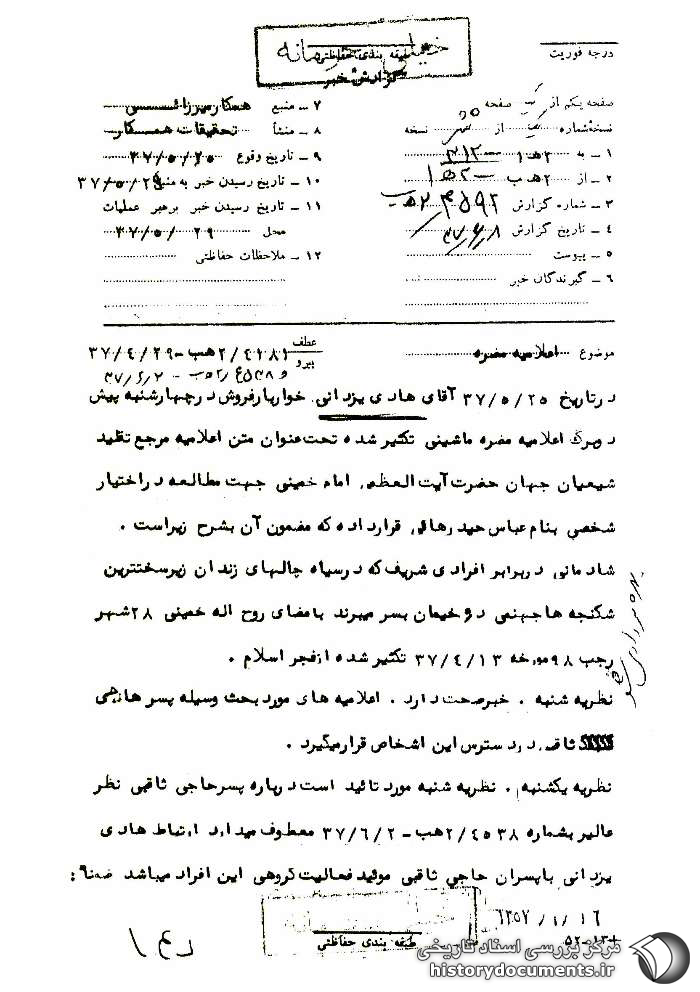 درجه فوریت
طبقه بندی حفاظتی
گزارش خبر
صفحه یکم از یک صفحه
نسخه شماره از نسخه
۱ ـ به ۲ هـ ۱ ۳۱۲
۲ ـ از ۲ هـ ب
۳ ـ شماره گزارش
۴ ـ تاریخ گزارش ۳۷/۶/۸
۵ ـ پیوست
۶ ـ گیرندگان خبر
۷ ـ منبع همکار میرزائی
۸ ـ منشأ تحقیقات همکار
۹ ـ تاریخ وقوع ۳۷/۵/۲۵
۱۰ ـ تاریخ رسیدن خبر به منبع ۳۷/۵/۲۹
۱۱ ـ تاریخ رسیدن خبر برهبر عملیات
محل ۳۷/۵/۲۹
۱۲ ـ ملاحظات حفاظتی
موضوع اعلامیه مضره
عطف
پیرو
۳۷/۴/۲۹
۳۷/۶/۲
در تاریخ ۳۷/۵/۲۵ آقای هادی یزدانی خواربارفروش در چهارشنبه پیش
دوبرگ اعلامیه مضره ماشینی تکثیر شده تحت عنوان متن اعلامیه مرجع تقلید
شیعیان جهان حضرت آیت العظمی امام خمینی جهت مطالعه در اختیار
شخصی بنام عباس حیدرهائی قرار داده که مضمون آن بشرح زیر است .
شادمانی در برابر افرادی شریف که در سیاه چالهای زندان زیر سختترین
شکنجه ها جهنمی دژخیمان بسر میبرند بامضای روح اله خمینی ۲۸ شهر
رجب ۹۸ مورخه ۳۷/۴/۱۳ تکثیر شده از فجر اسلام .
نظریه شنبه . خبر صحت دارد . اعلامیه های مورد بحث وسیله پسر هاجی
ثاقبی در دسترس این اشخاص قرار میگیرد .
نظریه یکشنبه . نظریه شنبه مورد تائید است درباره پسر حاجی ثاقبی نظر
عالیر بشماره ۲/۴۵۳۸ هب - ۳۷/۶/۲ معطوف میدارد ارتباط هادی
یزدانی با پسران حاجی ثاقبی موئید فعالیت گروهی این افراد میباشد ضمنا:
طبقه بندی حفاظتی
۵۲-۱۳+
مرکز بررسی اسناد تاریخی
historydocuments.ir